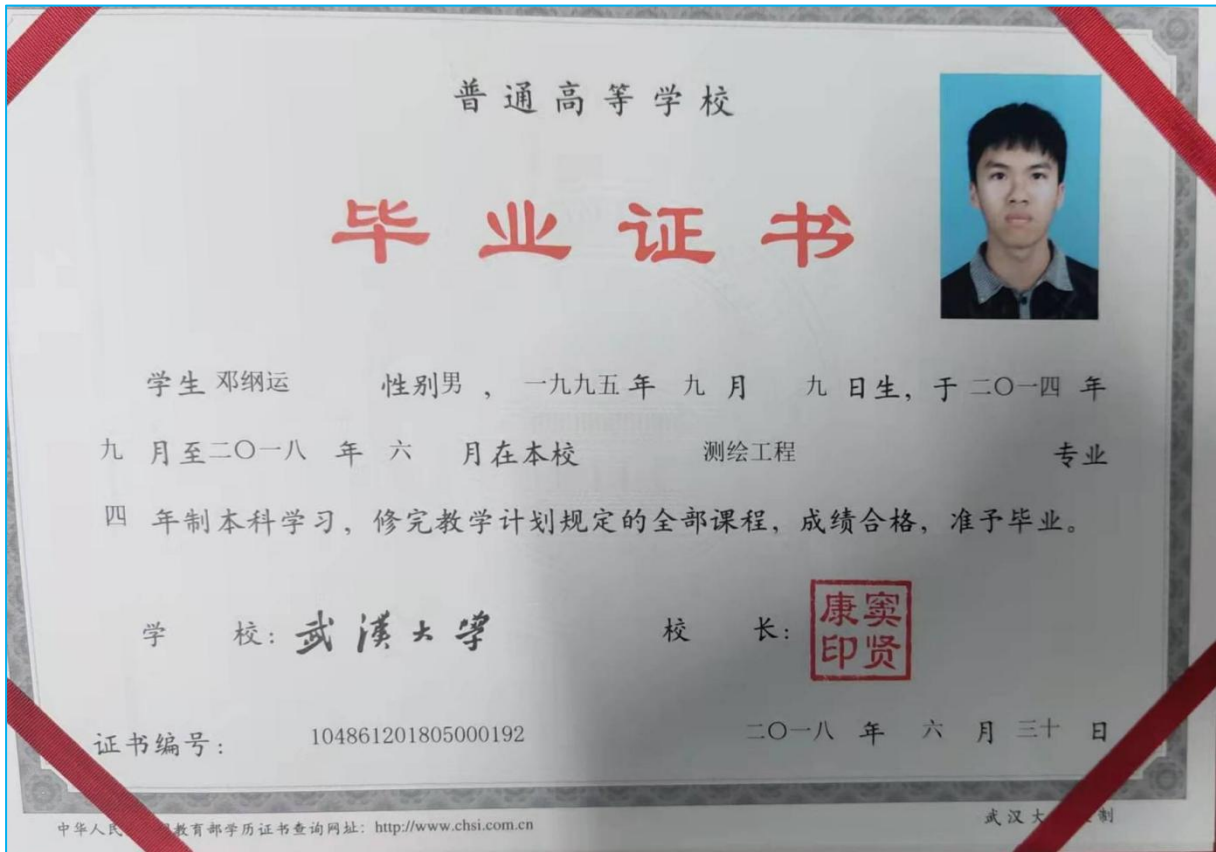 普通高等学校
毕业证书
学生 邓纲运 性别男，一九九五年 九月 九日生，于二〇一四年
九 月至二〇一八 年 六 月在本校 测绘工程 专业
四 年制本科学习，修完教学计划规定的全部课程，成绩合格，准予毕业。
学 校：武漢大学 校 长：窦贤康印
证书编号： 104861201805000192 二〇一八 年 六 月 三十 日
中华人民 教育部学历证书查询网址：http://www.chsi.com.cn 武汉大 制